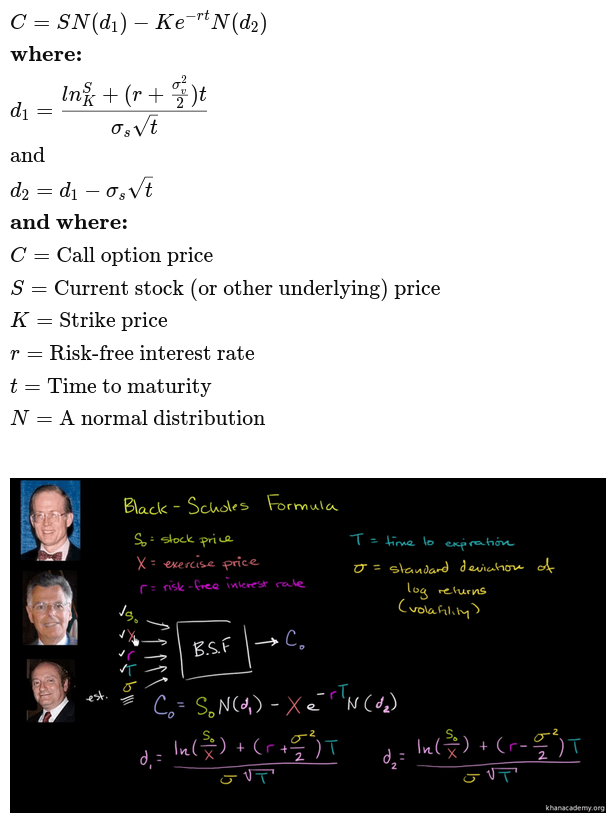 C = SN(d₁) − Ke⁻ʳᵗN(d₂)
where:
d₁ = (ln S/K + (r + σᵥ²/2)t) / (σₛ√t)
and
d₂ = d₁ − σₛ√t
and where:
C = Call option price
S = Current stock (or other underlying) price
K = Strike price
r = Risk-free interest rate
t = Time to maturity
N = A normal distribution
Black-Scholes Formula
S₀ = stock price
X = exercise price
r = risk-free interest rate
T = time to expiration
σ = standard deviation of
log returns
(volatility)
✓S₀
✓X
✓r
✓T
est. σ
B.S.F
C₀
C₀ = S₀N(d₁) − Xe⁻ʳᵀN(d₂)
d₁ = (ln(S₀/X) + (r + σ²/2)T) / (σ√T)
d₂ = (ln(S₀/X) + (r − σ²/2)T) / (σ√T)
khanacademy.org